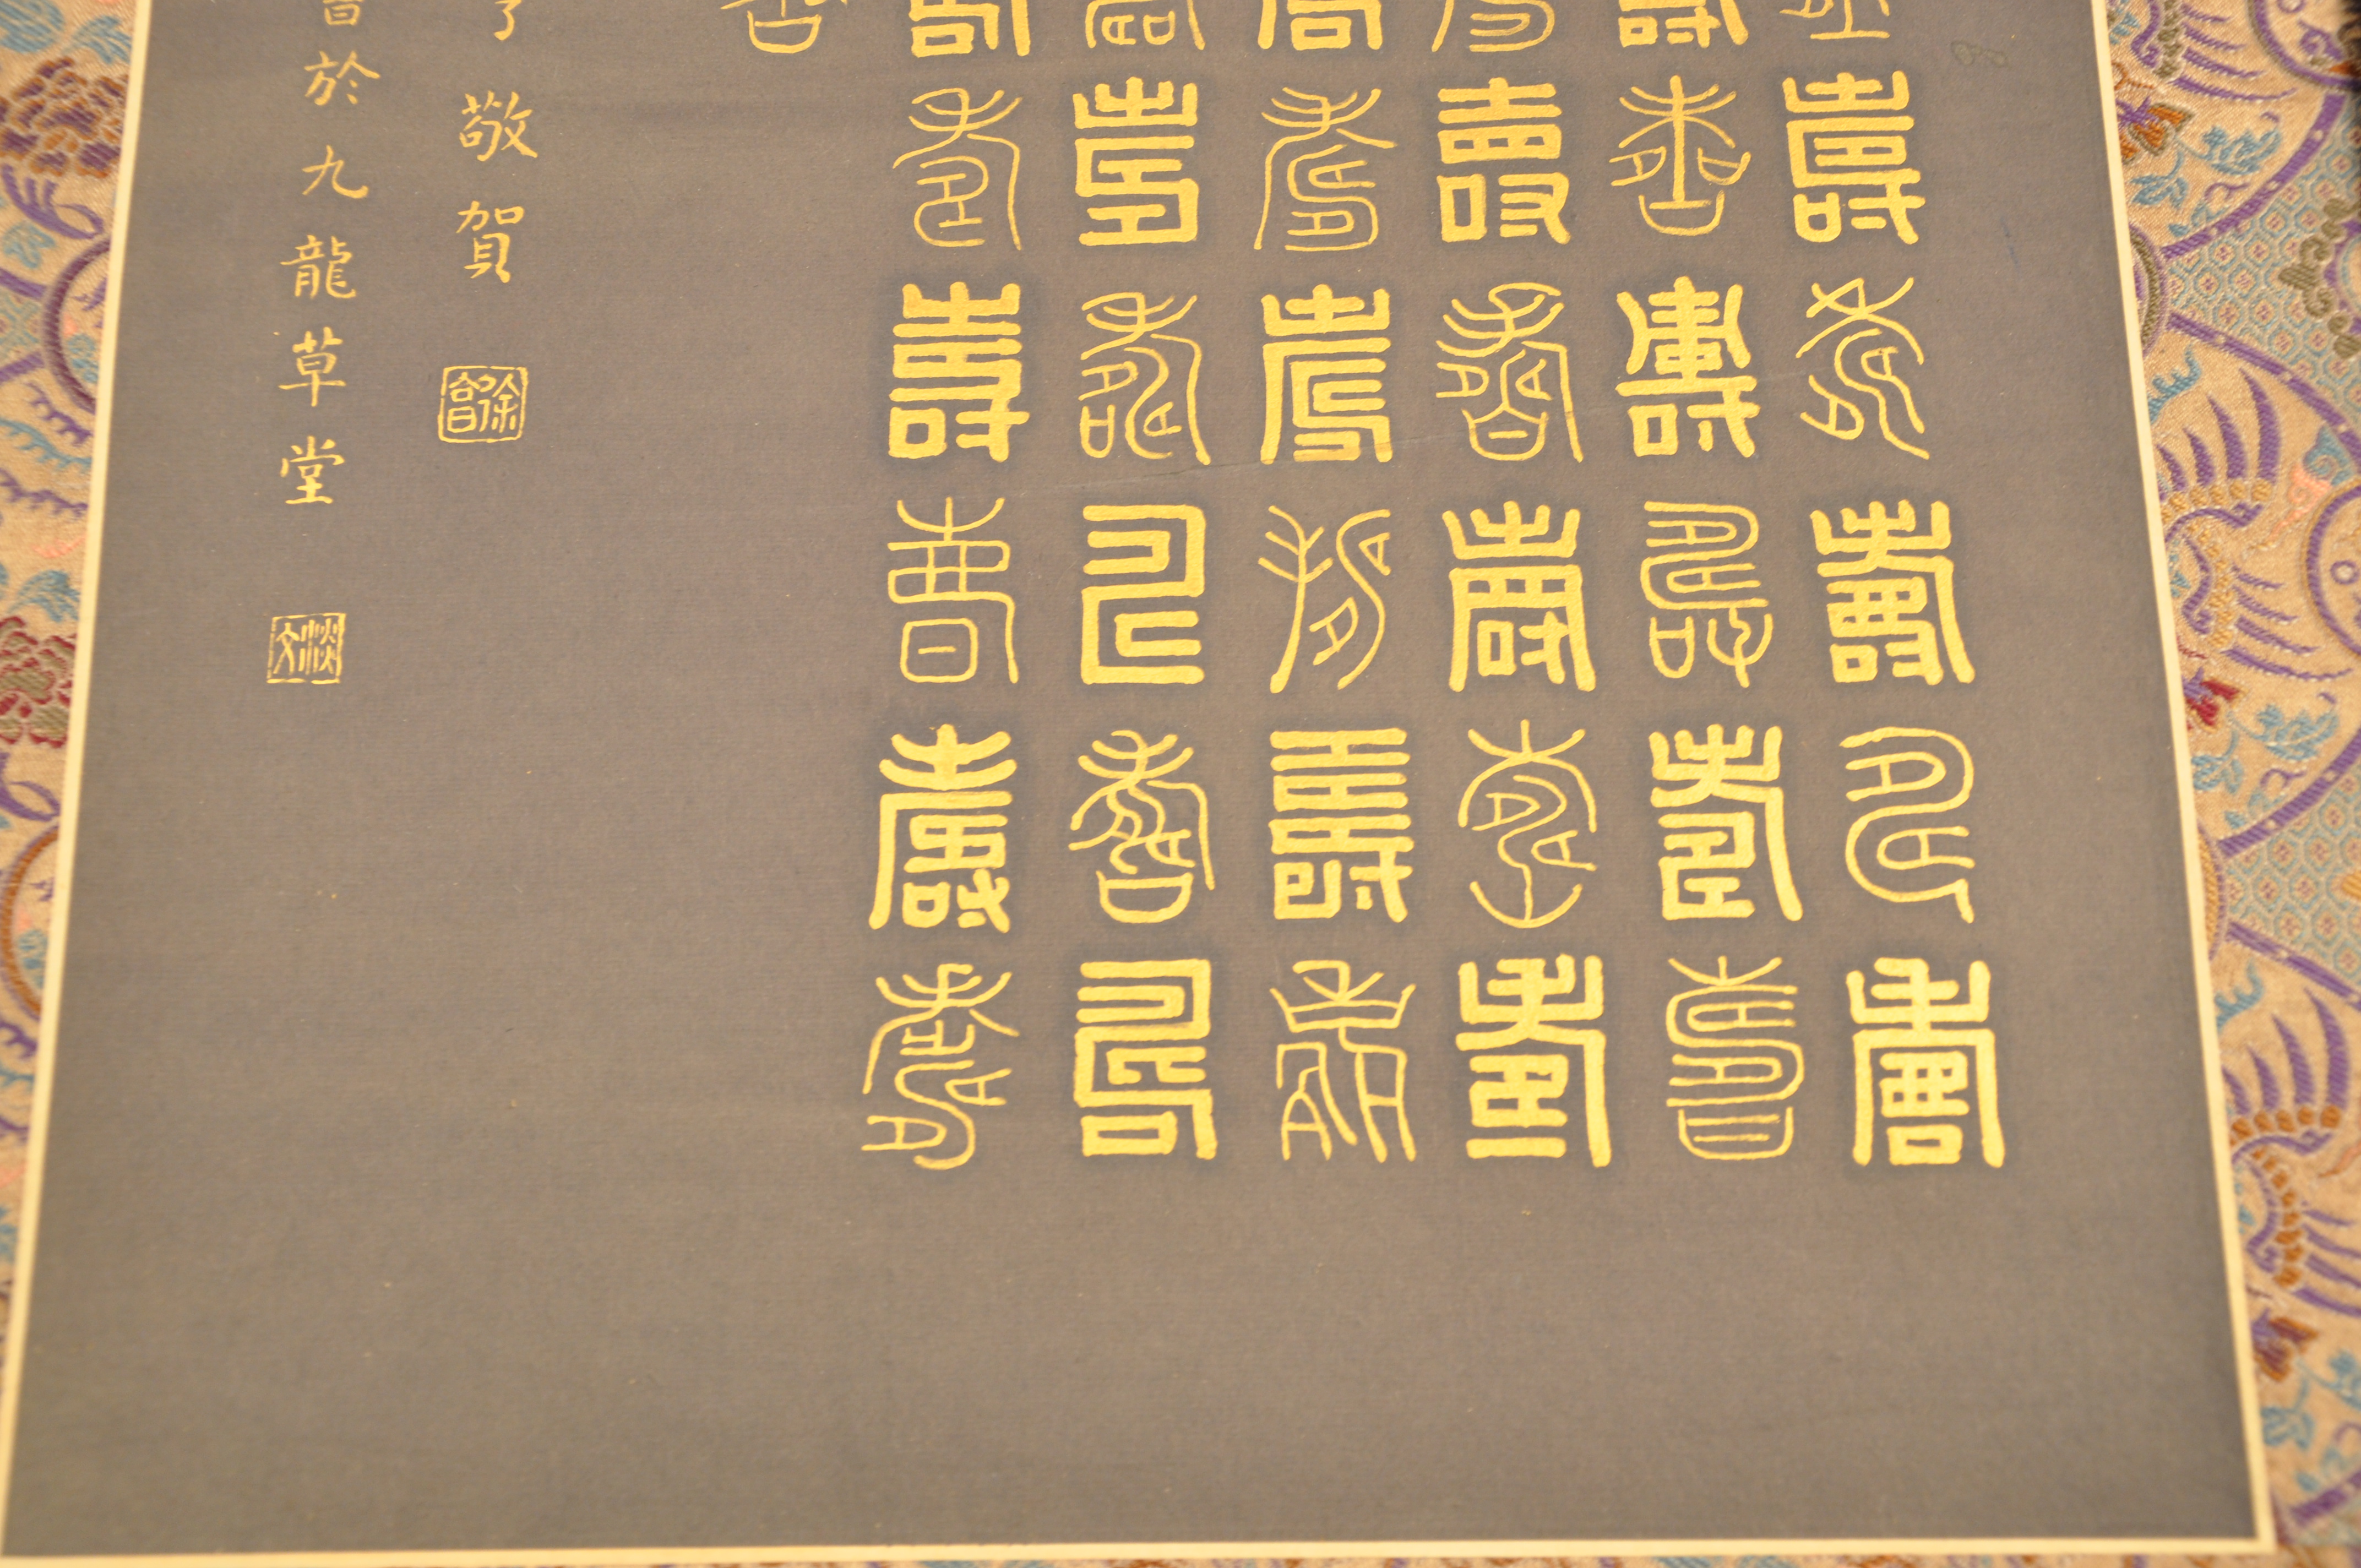 壽壽壽壽壽
壽壽壽壽壽
壽壽壽壽壽
壽壽壽壽壽
壽壽壽壽壽
壽壽壽壽壽
敬賀
於九龍草堂